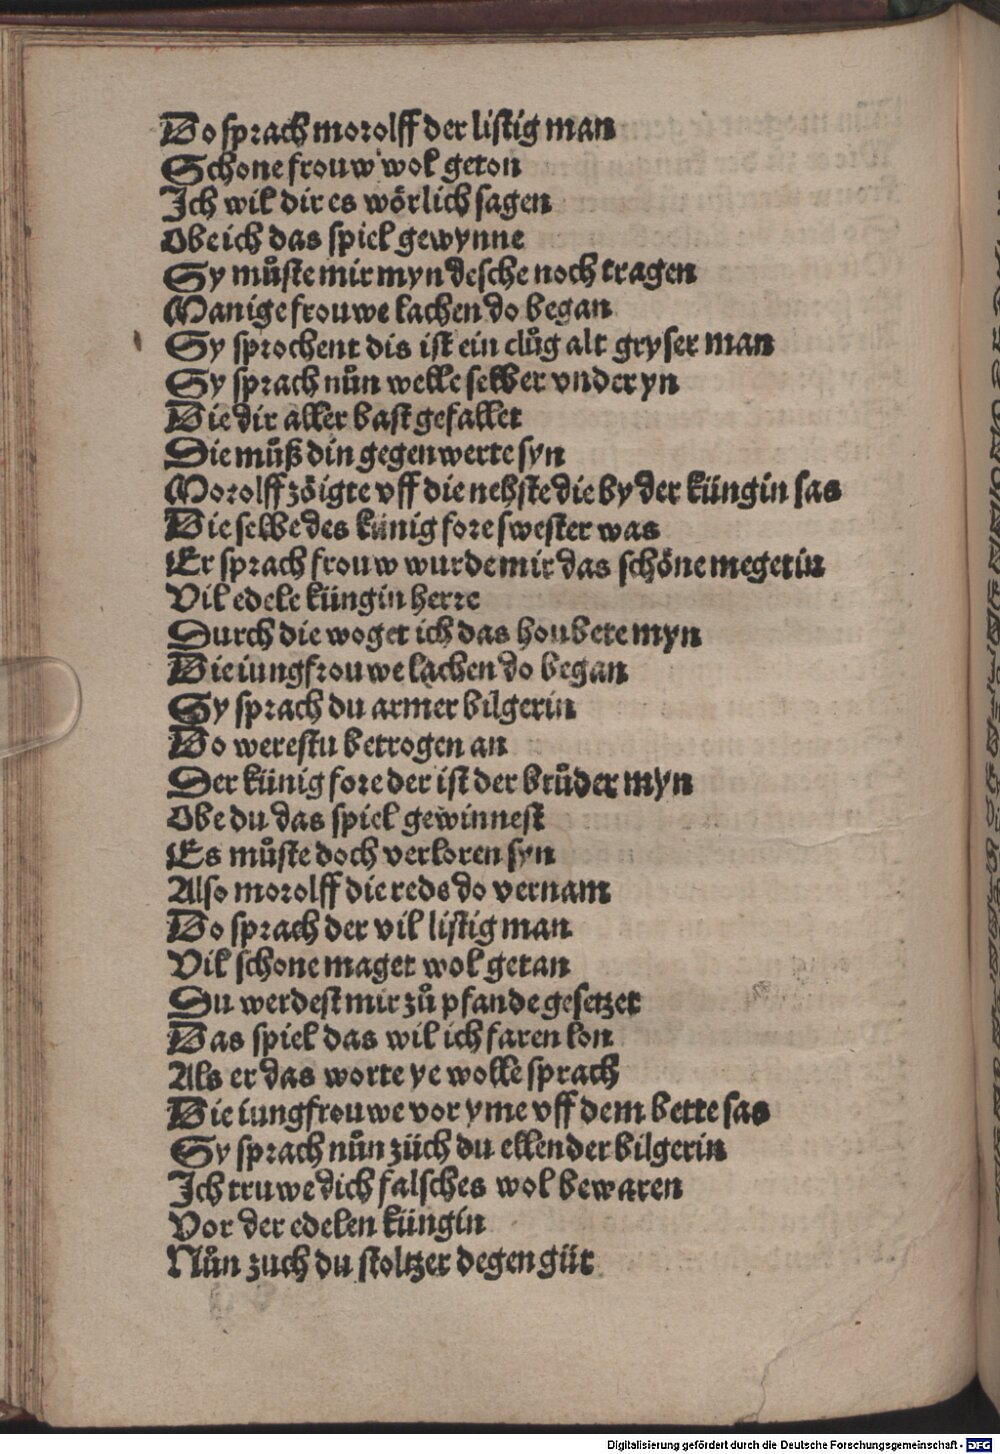 Do sprach morolff der listig man
Schone frouw wol geton
Ich wil dir es wörlich sagen
Obe ich das spiel gewynne
Sy můste mir myn desche noch tragen
Manige frouwe lachen do began
Sy sprochent dis ist ein clůg alt gryser man
Sy sprach nůn welle selber vnder yn
Die dir aller bast gefallet
Die můß din gegenwerte syn
Morolff zöigte vff die nehste die by der küngin sas
Die selbe des künig fore swester was
Er sprach frouw wurde mir das schöne megetin
Vil edele küngin herre
Durch die woget ich das houbete myn
Die iungfrouwe lachen do began
Sy sprach du armer bilgerin
Do werestu betrogen an
Der künig fore der ist der brůder myn
Obe du das spiel gewinnest
Es můste doch verloren syn
Also morolff die rede do vernam
Do sprach der vil listig man
Vil schone maget wol getan
Du werdest mir zů pfande gesetzet
Das spiel das wil ich faren lon
Als er das worte ye wolle sprach
Die iungfrouwe vor yme vff dem bette sas
Sy sprach nůn züch du ellender bilgerin
Ich truwe dich falsches wol bewaren
Vor der edelen küngin
Nůn zuch du stoltzer degen güt
Digitalisierung gefördert durch die Deutsche Forschungsgemeinschaft - DFG